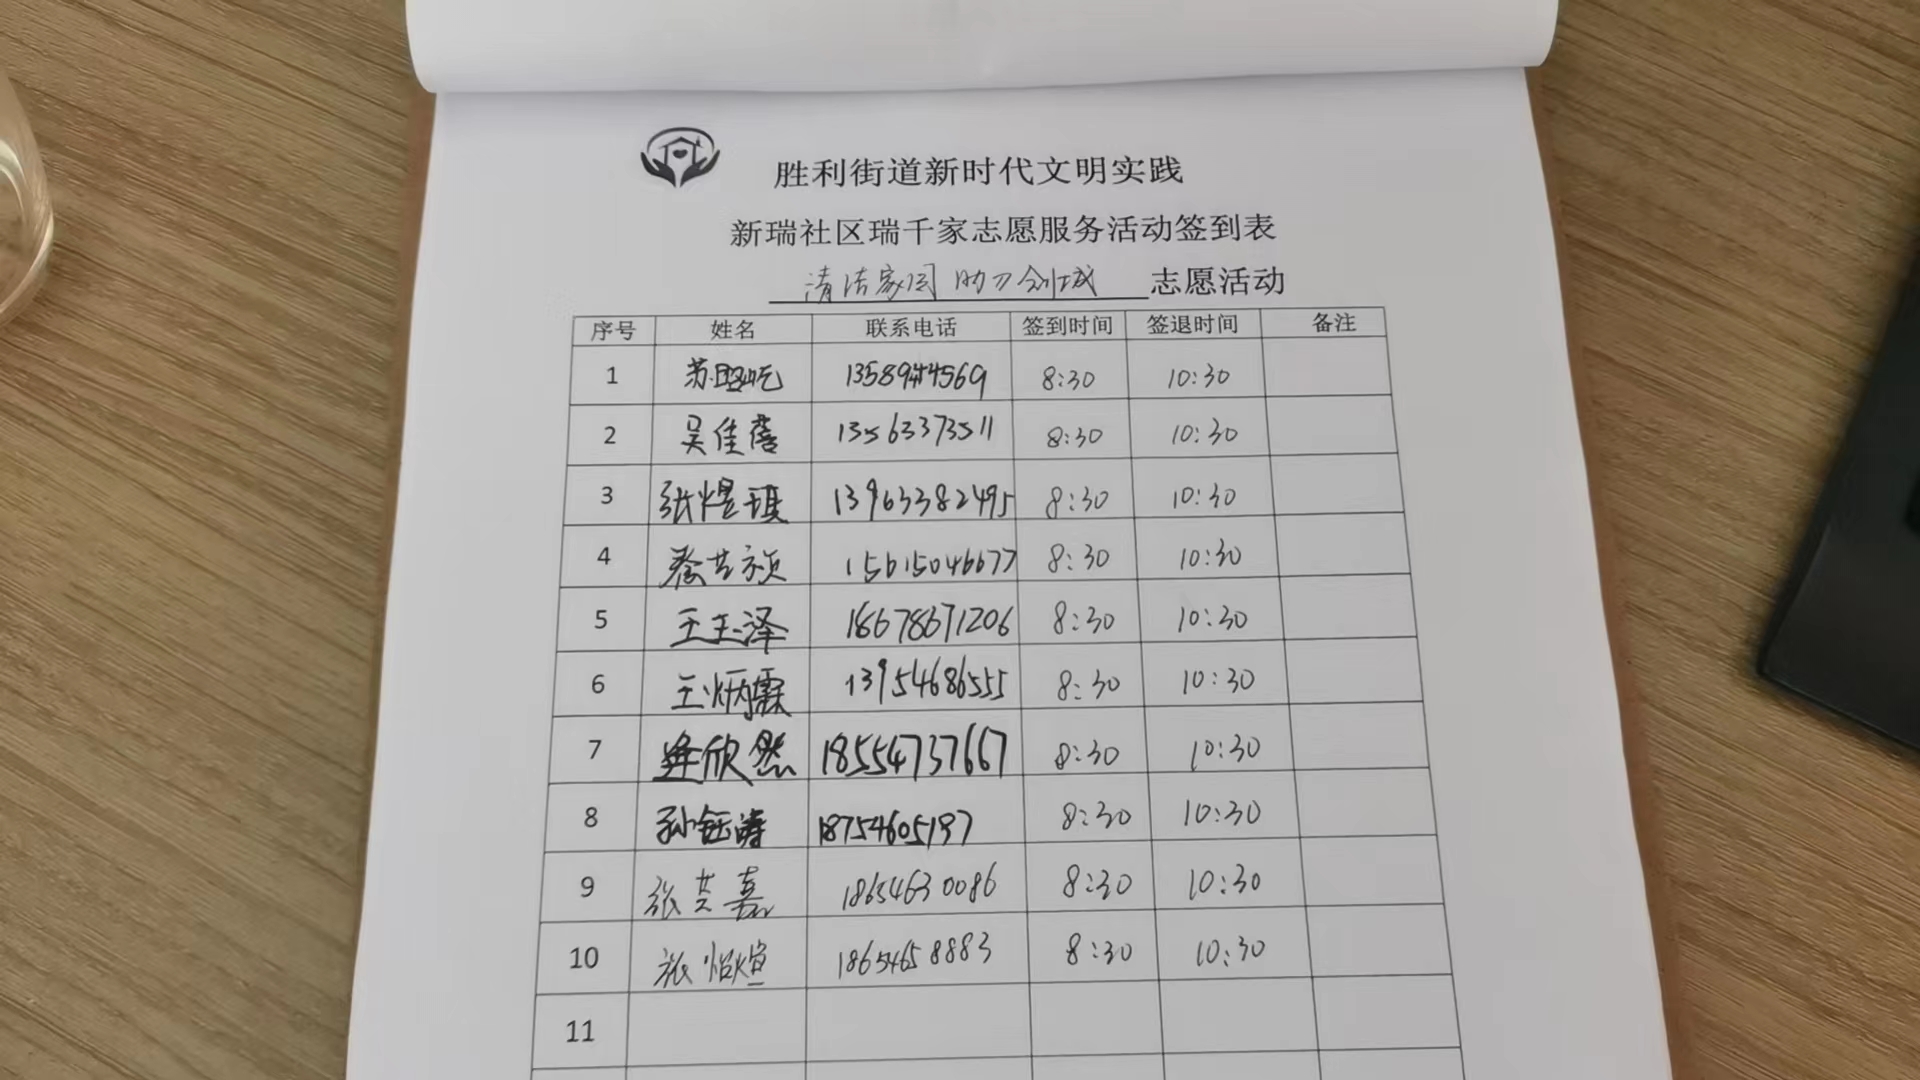 胜利街道新时代文明实践
新瑞社区瑞千家志愿服务活动签到表
清洁家园 助力创城 志愿活动
序号 姓名 联系电话 签到时间 签退时间 备注
1 苏昭屹 13589444569 8:30 10:30
2 吴佳蓓 13563373511 8:30 10:30
3 张煜琪 13963382495 8:30 10:30
4 秦艺颖 15615046677 8:30 10:30
5 王玉泽 18678671206 8:30 10:30
6 王炳霖 13954686555 8:30 10:30
7 逄欣然 18554737667 8:30 10:30
8 孙钰涛 18754605197 8:30 10:30
9 张艺嘉 18654630086 8:30 10:30
10 张怡煊 18654658883 8:30 10:30
11